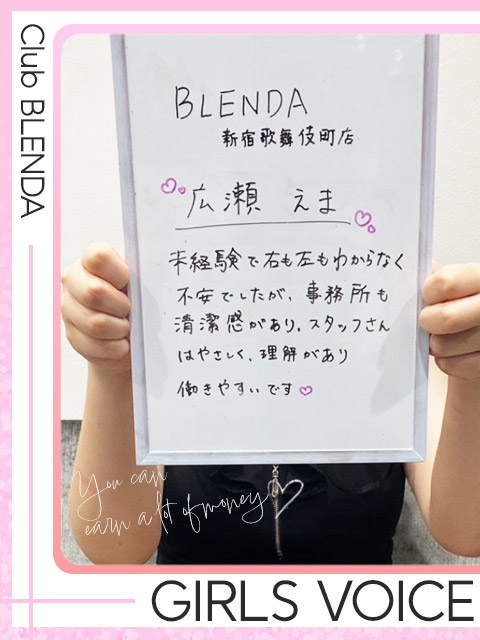 Club BLENDA
BLENDA
新宿歌舞伎町店
広瀬 えま
未経験で右も左もわからなく
不安でしたが、事務所も
清潔感があり。スタッフさん
はやさしく、理解があり
働きやすいです
You can
earn a lot of money
GIRLS VOICE